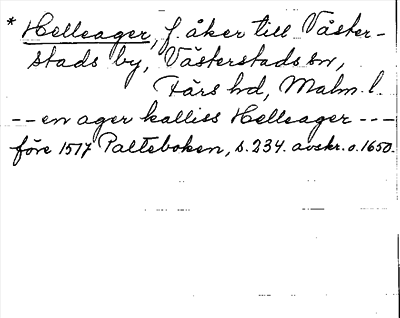 * Helleager, f. åker till Väster-
stads by, Västerstads sn,
Färs hd, Malm. l.
-- en ager kalliss Helleager ---
före 1517 Palteboken, s. 234. avskr. o. 1650.